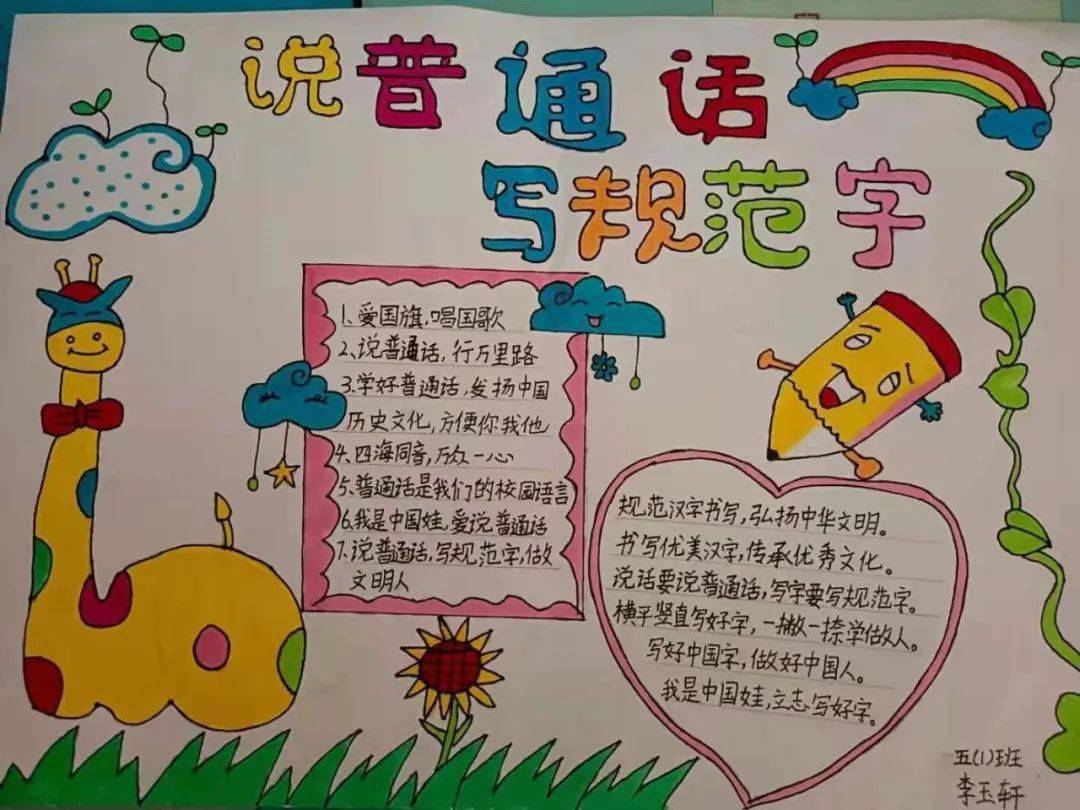 说普通话
写规范字
1.爱国旗,唱国歌
2.说普通话,行万里路
3.学好普通话,发扬中国
历史文化,方便你我他
4.四海同音,万众一心
5.普通话是我们的校园语言
6.我是中国娃,爱说普通话
7.说普通话,写规范字,做
文明人
规范汉字书写,弘扬中华文明。
书写优美汉字,传承优秀文化。
说话要说普通话,写字要写规范字。
横平竖直写好字,一撇一捺学做人。
写好中国字,做好中国人。
我是中国娃,立志写好字。
五(1)班
李玉轩